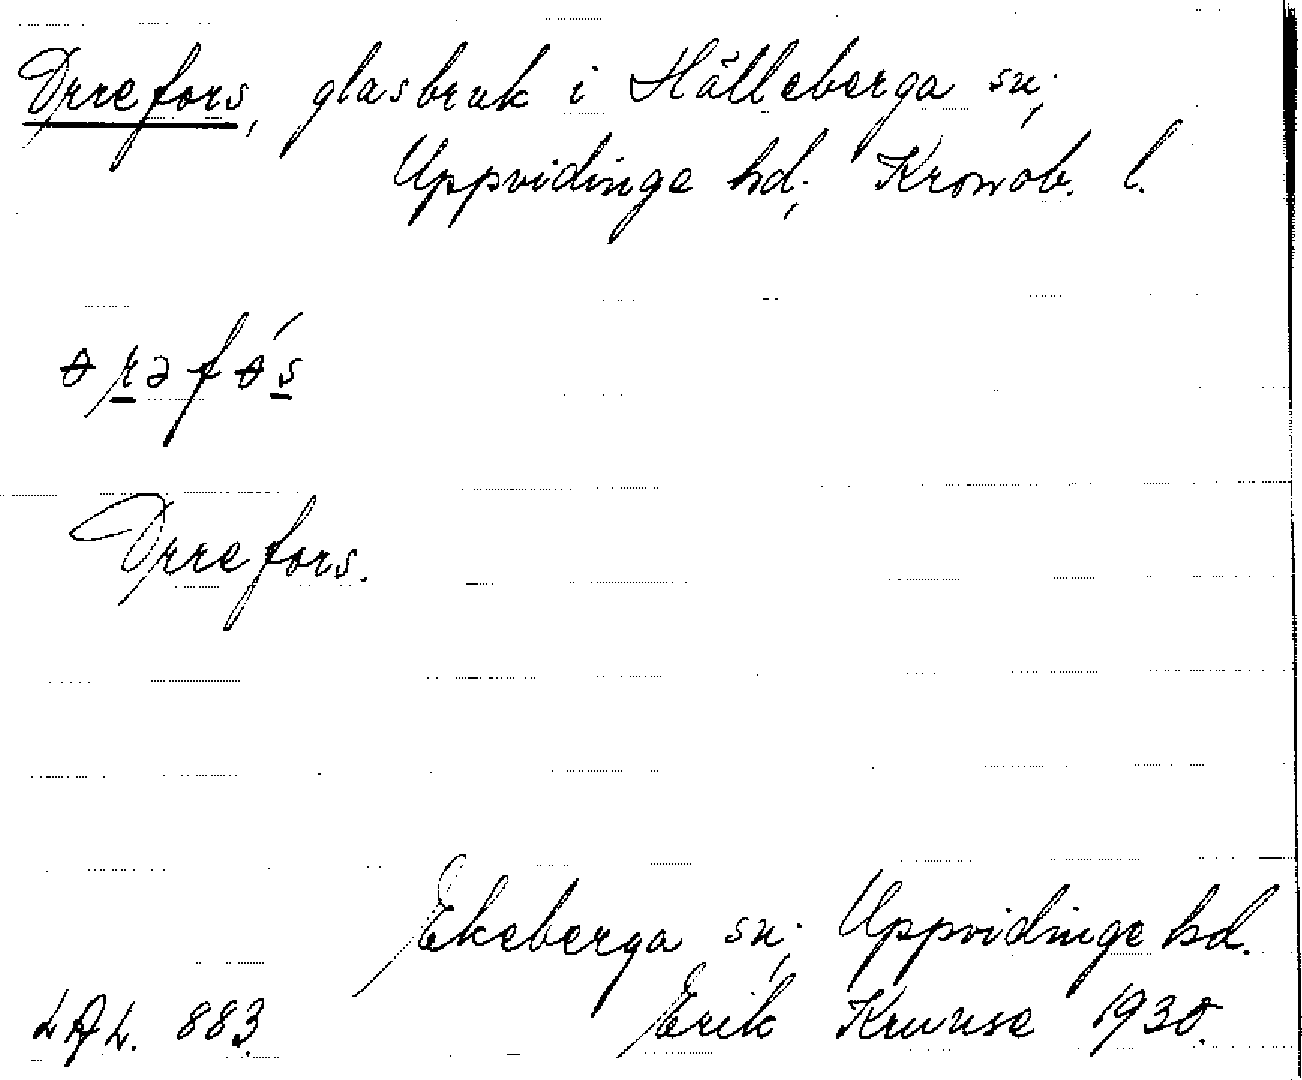 Orrefors, glasbruk i Hälleberga sn;
Uppvidinge hd; Kronob. l.
Orrefors.
Ekeberga sn; Uppvidinge hd.
Erik Kruuse 1930.
883.